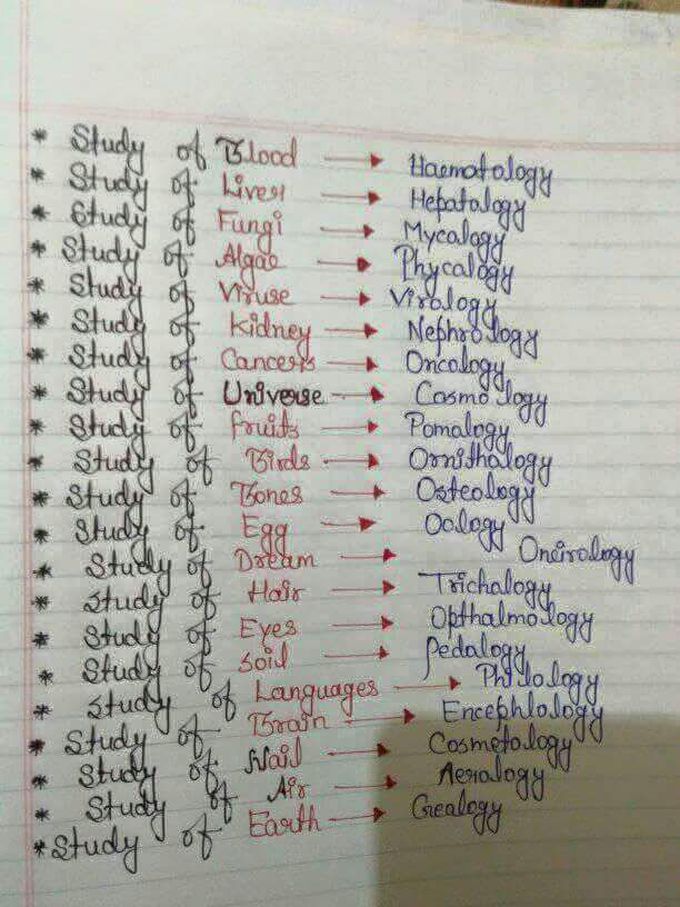 * Study of Blood → Haematology
* Study of Liver → Hepatology
* Study of Fungi → Mycology
* Study of Algae → Phycology
* Study of Viruse → Virology
* Study of Kidney → Nephrology
* Study of Cancers → Oncology
* Study of Universe → Cosmology
* Study of fruits → Pomology
* Study of Birds → Ornithology
* Study of Bones → Osteology
* Study of Egg → Oology
* Study of Dream → Oneirology
* Study of Hair → Trichology
* Study of Eyes → Opthalmology
* Study of soil → Pedology
* Study of Languages → Philology
* Study of Brain → Encephlology
* Study of Nail → Cosmetology
* Study of Air → Aerology
* Study of Earth → Geology